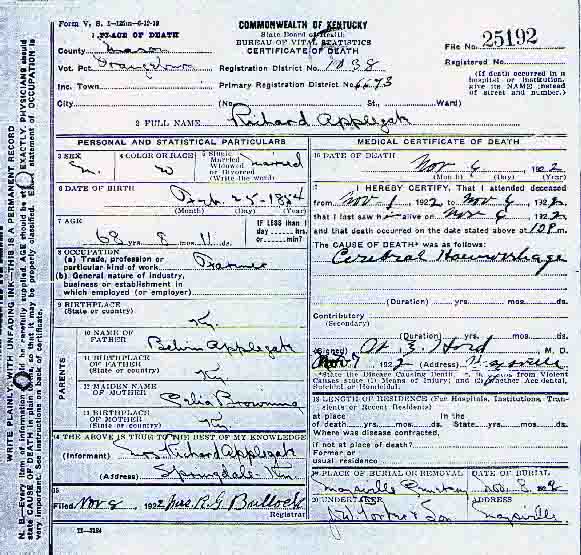 Form V. S. 1-125m-6-12-19
COMMONWEALTH OF KENTUCKY
State Board of Health
BUREAU OF VITAL STATISTICS
CERTIFICATE OF DEATH
1 PLACE OF DEATH
County Mason
File No. 25192
Vot. Pct.
Registration District No. 1038
Registered No.
Inc. Town
Primary Registration District No. 6673
(If death occurred in a hospital or institution, give its NAME instead of street and number.)
City (No. St., Ward)
2 FULL NAME Richard Applegate
PERSONAL AND STATISTICAL PARTICULARS
3 SEX M.
4 COLOR OR RACE W
5 Single Married Widowed or Divorced (Write the word) Married
6 DATE OF BIRTH
Feb. 25-1854
(Month) (Day) (Year)
7 AGE
68 yrs. 8 mos. 11 ds.
IF LESS than 1 day hrs. or min.?
8 OCCUPATION
(a) Trade, profession or particular kind of work Farmer
(b) General nature of industry, business or establishment in which employed (or employer)
9 BIRTHPLACE
(State or country) Ky.
PARENTS
10 NAME OF FATHER Applegate
11 BIRTHPLACE OF FATHER
(State or country) Ky
12 MAIDEN NAME OF MOTHER Celia Browning
13 BIRTHPLACE OF MOTHER
(State or country) Ky.
14 THE ABOVE IS TRUE TO THE BEST OF MY KNOWLEDGE
(Informant) Mrs Richard Applegate
(Address) Springdale Ky
15
Filed Nov 8 1922 Mrs. R. G. Bullock
Registrar
11-3184
MEDICAL CERTIFICATE OF DEATH
16 DATE OF DEATH
Nov 6 1922
(Month) (Day) (Year)
17 I HEREBY CERTIFY, That I attended deceased
from Nov 1 1922 to Nov 6 1922
that I last saw h alive on Nov 6 1922
and that death occurred on the date stated above at 10 P.m.
The CAUSE OF DEATH* was as follows:
Cerebral Haemorrhage
(Duration) yrs. mos. ds.
Contributory
(Secondary)
(Duration) yrs. mos. ds.
(Signed) Hord M. D.
Nov. 7 1922 (Address) Maysville
*State the Disease Causing Death, or, in deaths from Violent Causes state (1) Means of Injury; and (2) whether Accidental, Suicidal or Homicidal.
18 LENGTH OF RESIDENCE (For Hospitals, Institutions, Transients or Recent Residents)
At place of death yrs. mos. ds. In the State yrs. mos. ds.
Where was disease contracted,
if not at place of death?
Former or
usual residence
19 PLACE OF BURIAL OR REMOVAL DATE OF BURIAL
Maysville Nov 8 1922
20 UNDERTAKER ADDRESS
& Son Maysville
WRITE PLAINLY, WITH UNFADING INK—THIS IS A PERMANENT RECORD
N. B.—Every item of information should be carefully supplied. AGE should be stated EXACTLY. PHYSICIANS should
state CAUSE OF DEATH in plain terms, so that it may be properly classified. Exact statement of OCCUPATION is
very important. See instructions on back of certificate.